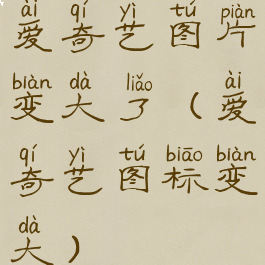 ài qí yì tú piàn
爱奇艺图片
biàn dà liǎo ài
变大了(爱
qí yì tú biāo biàn
奇艺图标变
dà
大)